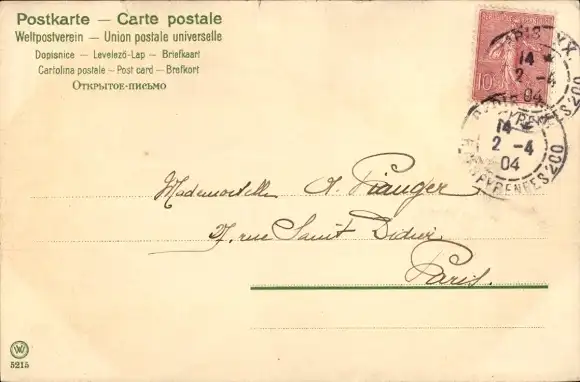 Postkarte — Carte postale
Weltpostverein — Union postale universelle
Dopisnice — Levelező-Lap — Briefkaart
Cartolina postale — Post card — Brefkort
Открытое-письмо
10
PARIS XX
14
2 -4
04
PYRENEES 200
PARIS
14
2 -4
04
R. DES PYRENEES 200
Mademoiselle A. Pianger
rue Saint Didier
Paris.
W
5215